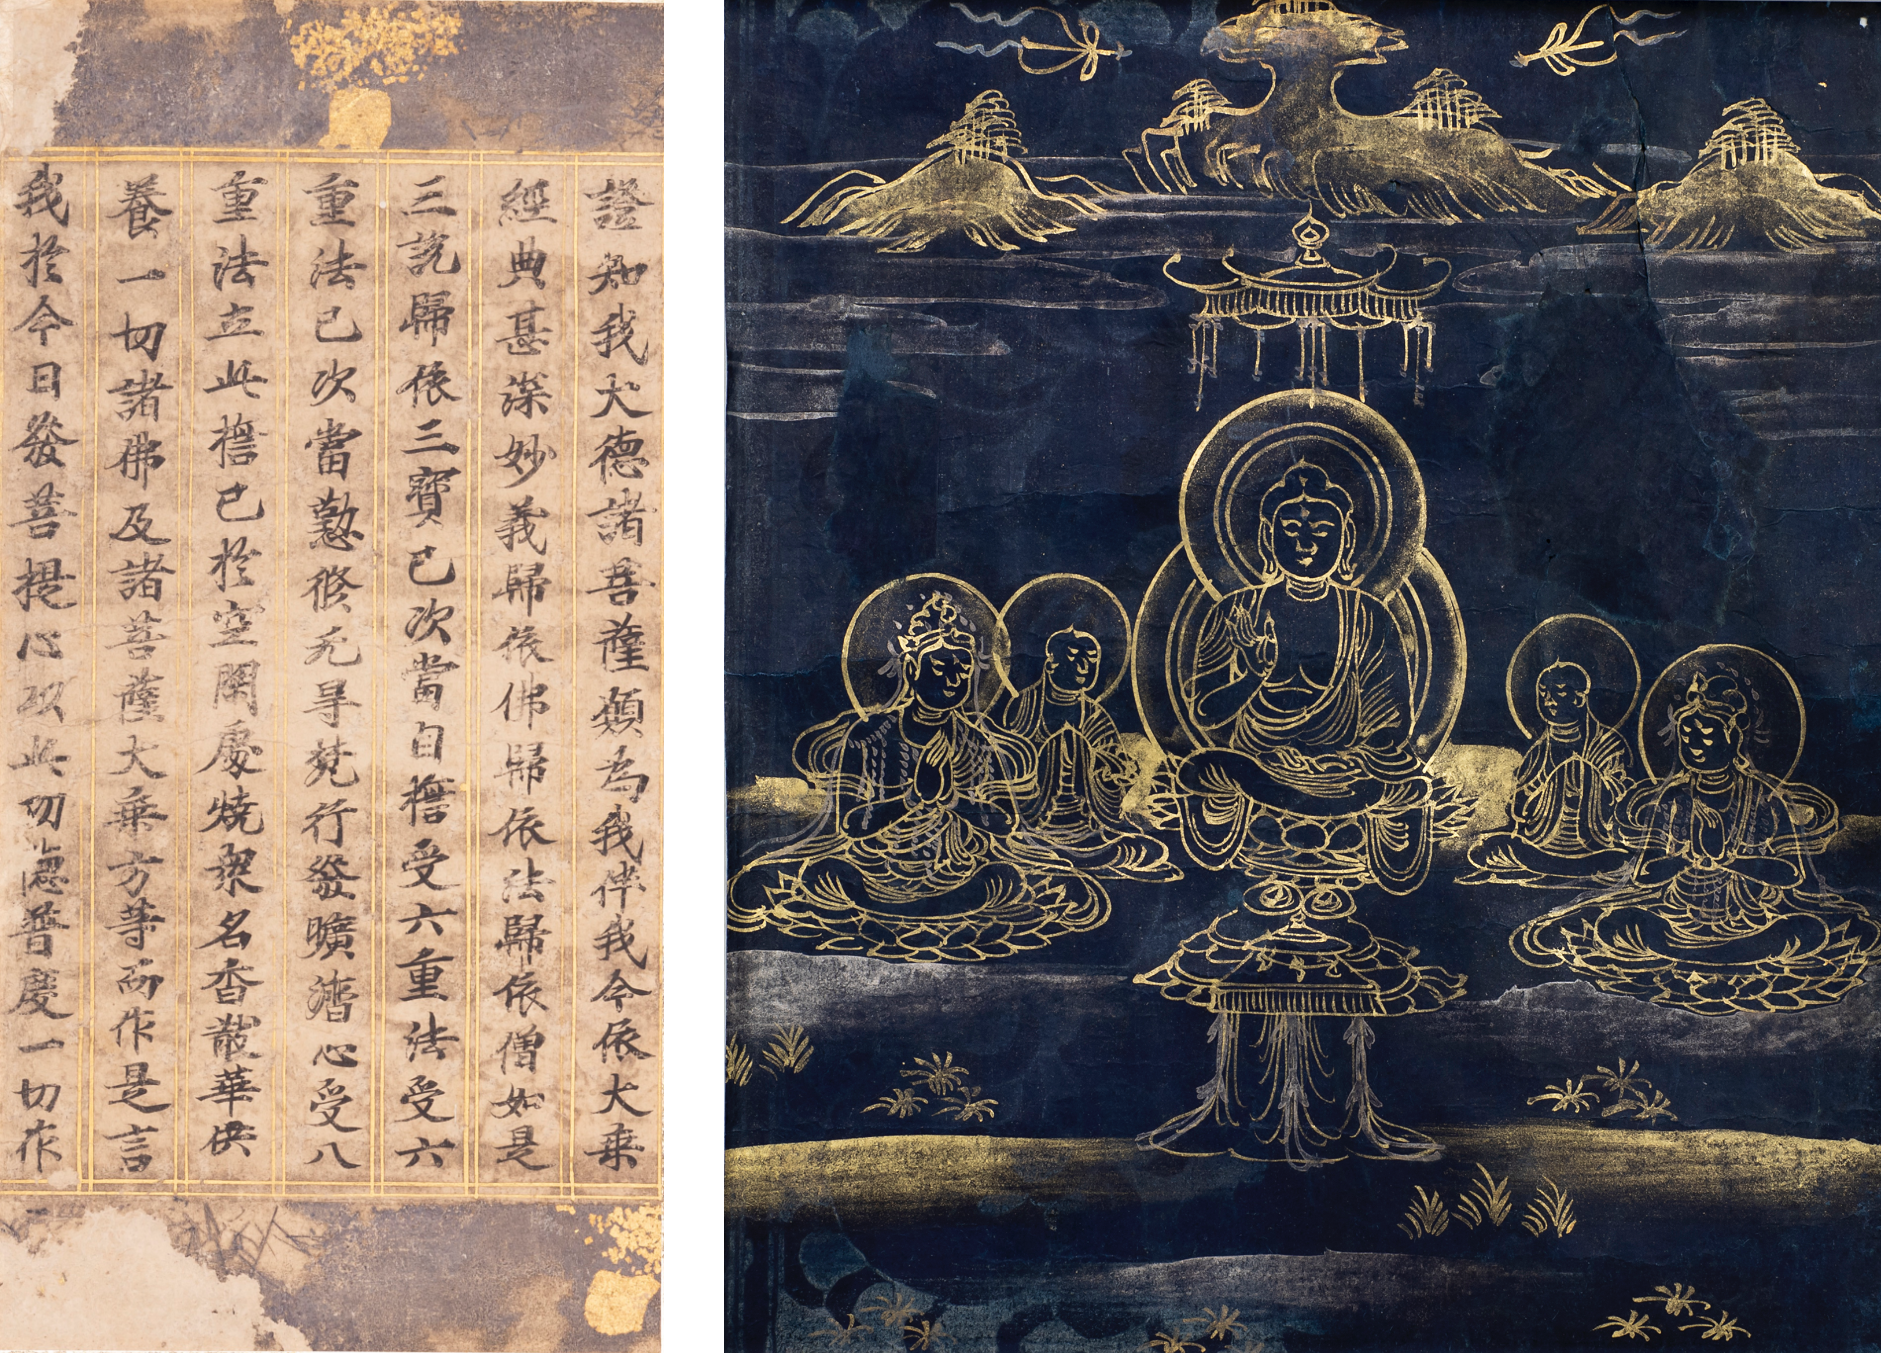 證知我大德諸菩薩願為我伴我今依大乗
經典甚深妙義歸依佛歸依法歸依僧如是
三說歸依三寶已次當自檐受六重法受六
重法已次當懃修无㝵梵行發曠濟心受八
重法立此檐已於空閑處燒衆名香散華供
養一切諸佛及諸菩薩大乗方等而作是言
我於今日發菩提心以此功德普慶一切作